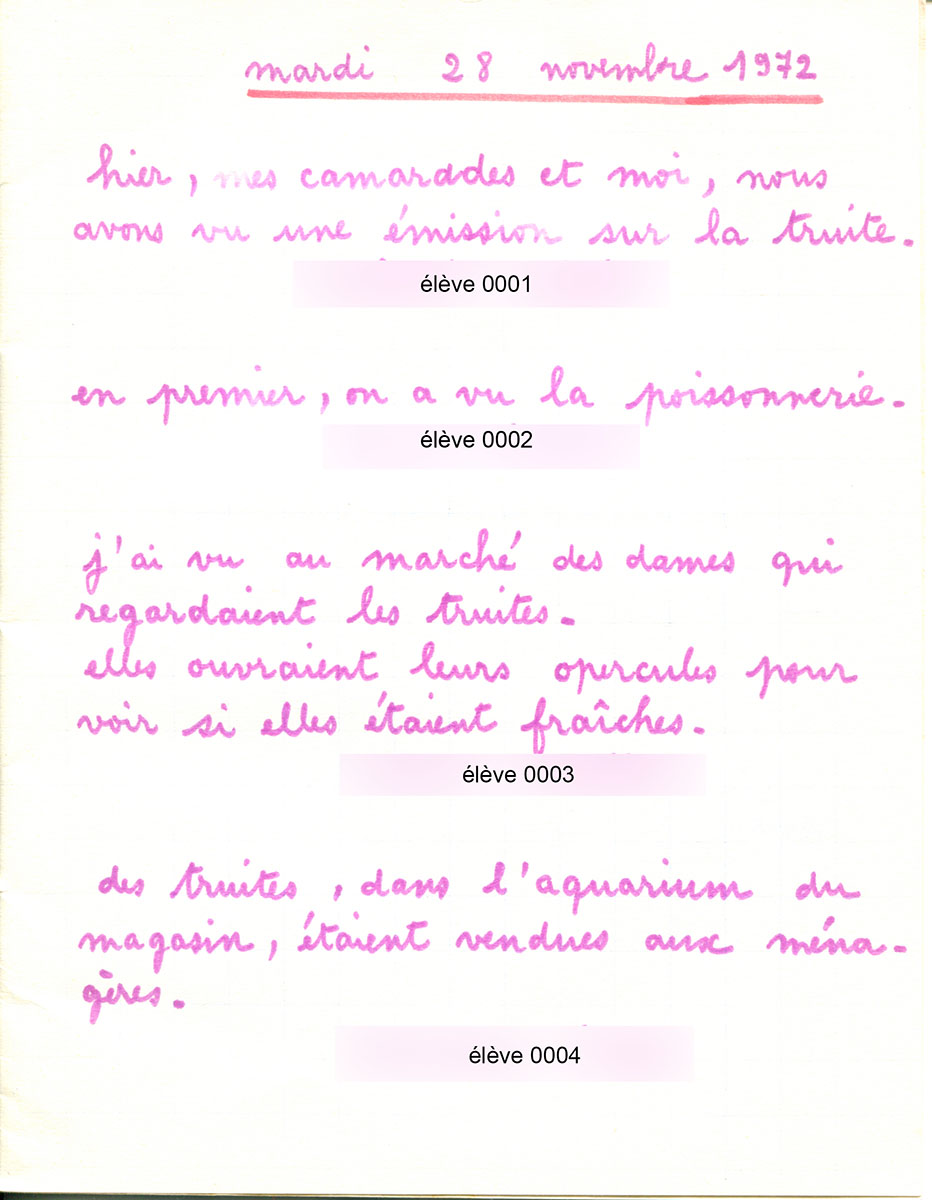 mardi 28 novembre 1972
hier, mes camaraddes et moi, nous
avons vu une émission sur la truite.
élève 0001
en premier, on a vu la poissonnerie.
élève 0002
j'ai vu au marché des dames qui
regardaient les truites.
elles ouvraient leurs opercules pour
voir si elles étaient fraîches.
élève 0003
des truites, dans l'aquarium du
magasin, étaient vendues aux ména-
gères.
élève 0004